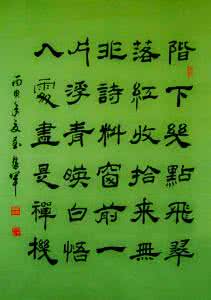 階下幾點飛翠
落紅收拾來無
非詩料窗前一
片浮青映白悟
入處盡是禪機
丙申年夏